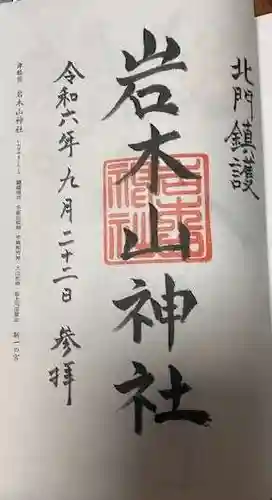 北門鎮護
岩木山神社
令和六年九月二十二日 参拝
津軽国 岩木山神社